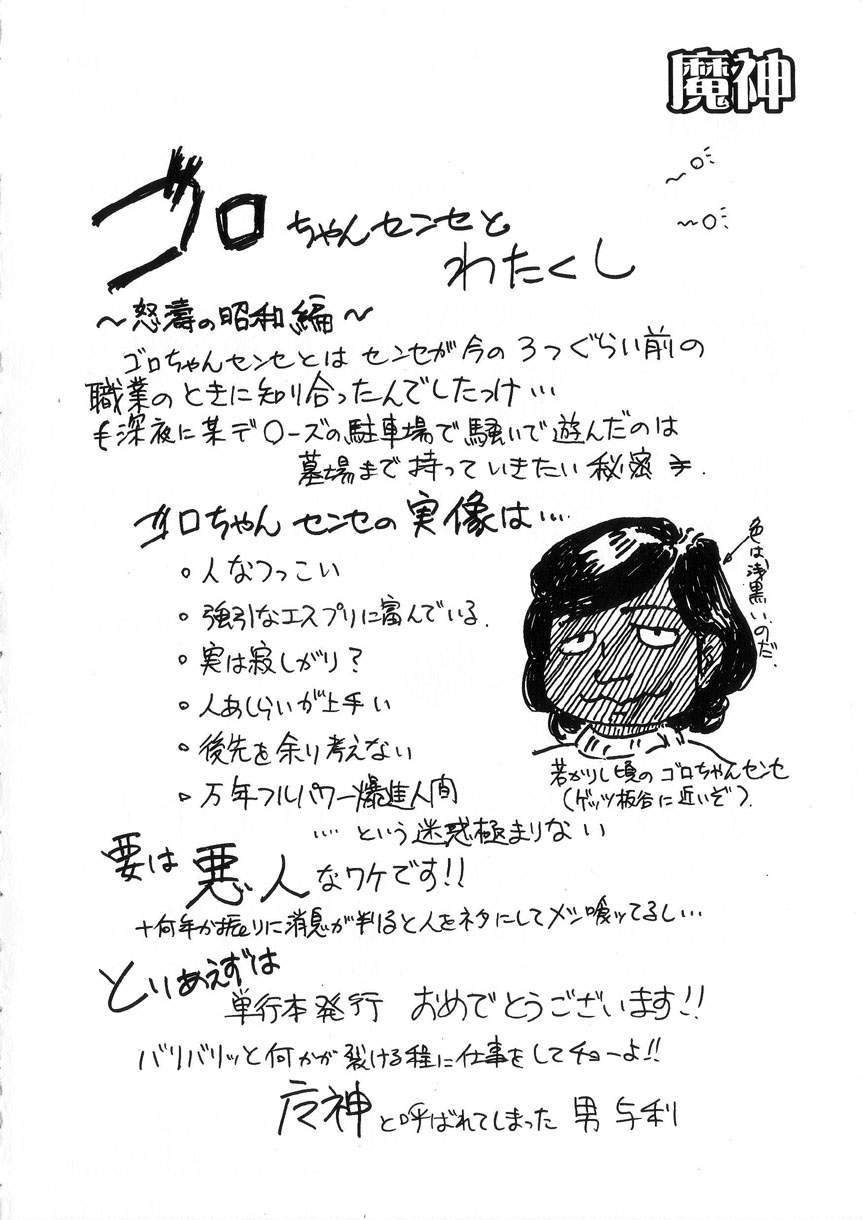 魔神
ゴロちゃんセンセと
わたくし
～怒濤の昭和編～
ゴロちゃんセンセとは センセが今の3つぐらい前の
職業のときに知り合ったんでしたっけ…
深夜に某デ〇ーズの駐車場で騒いで遊んだのは
墓場まで持っていきたい秘密
ゴロちゃんセンセの実像は…
。人なつっこい
。強引なエスプリに富んでいる.
。実は寂しがり?
。人あしらいが上手い
。後先を余り考えない
。万年フルパワー爆進人間
…という迷惑極まりない
色は浅黒いのだ.
若かりし頃のゴロちゃんセンセ
(ゲッツ板谷に近いぞ).
要は悪人なワケです!!
十何年か振りに消息が判ると人をネタにしてメシ喰ってるし…
とりあえずは
単行本発行 おめでとうございます!!
バリバリッと何かが裂ける程に仕事をしてチョーよ!!
神と呼ばれてしまった男 与利